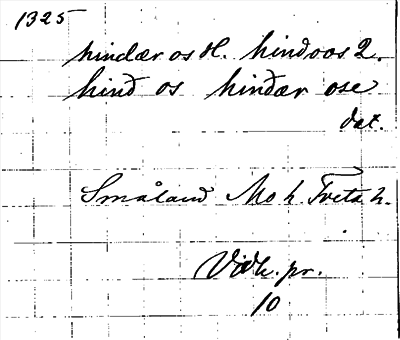 1325
hindær os H. hindoos 2.
hind os hindær ose
dat.
Småland Mo h. Tveta h.
Vidk. pr.
10